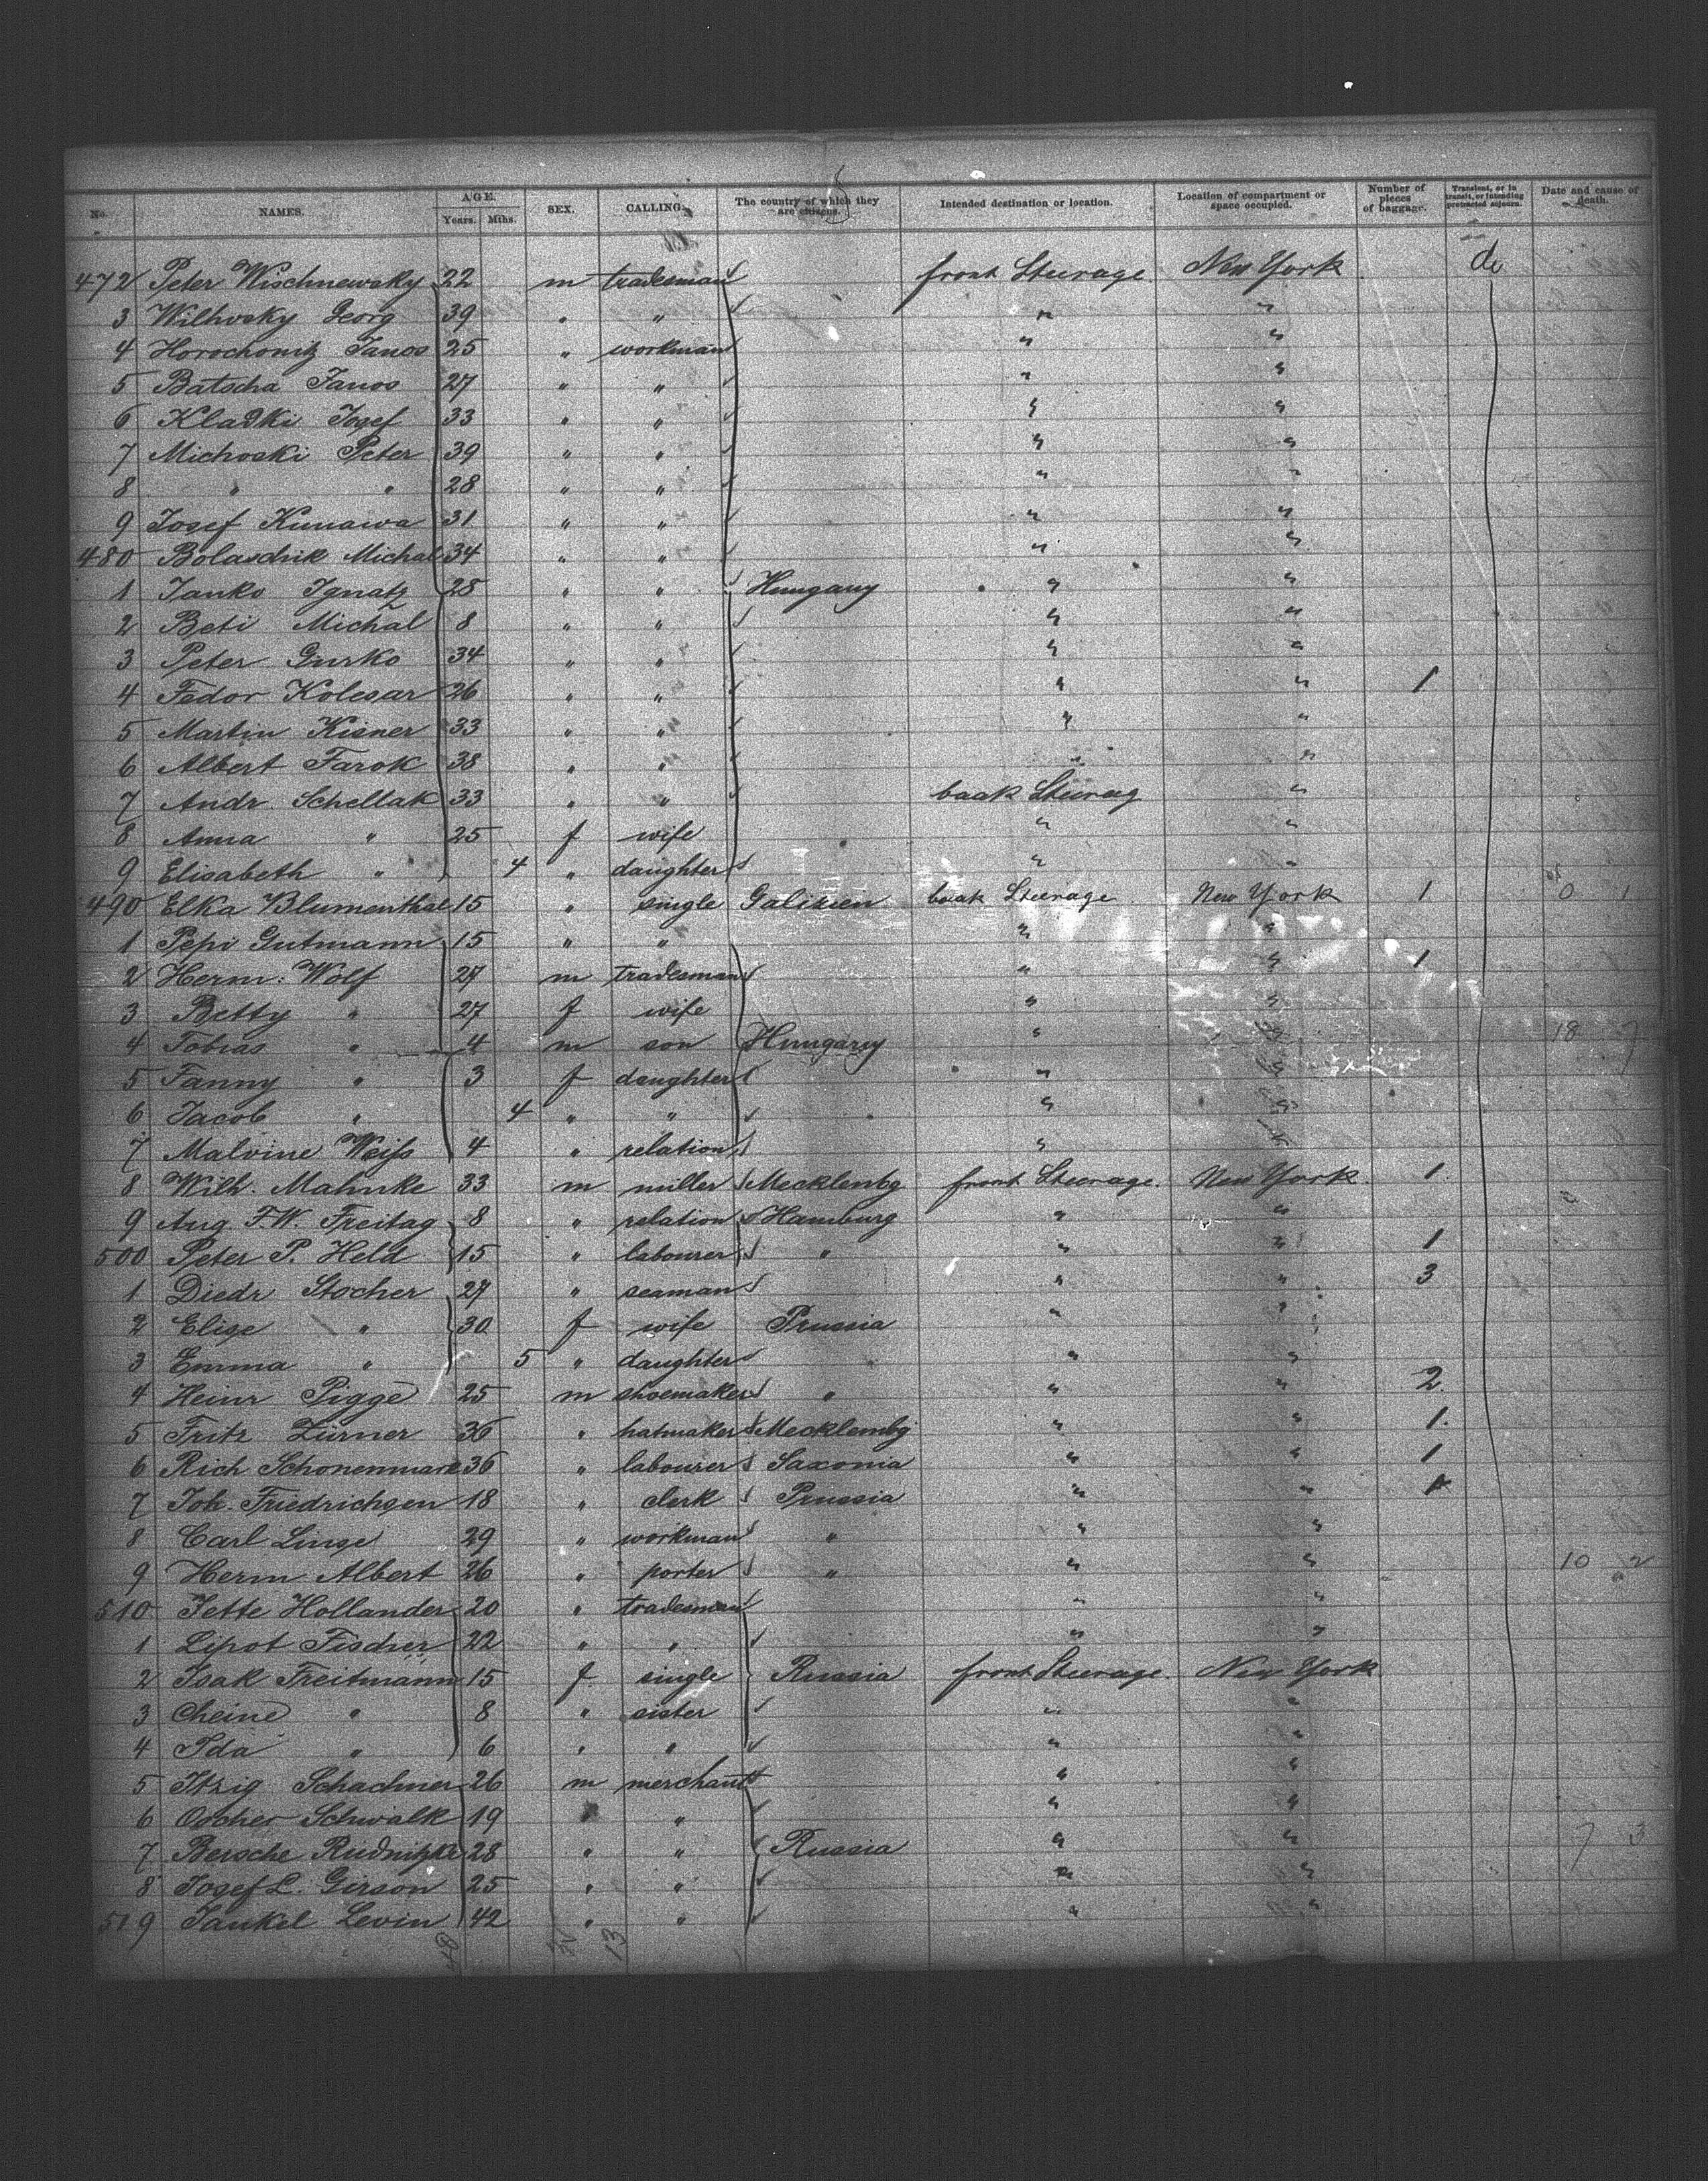 No. NAMES. AGE. Years. Mths. SEX. CALLING. The country of which they are citizens. Intended destination or location. Location of compartment or space occupied. Number of pieces of baggage. Transient, or in transit, or intending protracted sojourn. Date and cause of death.
472 Peter Wischnewsky 22 m tradesman front Steerage New York do
3 Georg 39 " " " "
4 Horochonitz Janos 25 " workman " "
5 Batscha Janos 27 " " " "
6 Kladki Josef 33 " " " "
7 Michoski Peter 39 " " " "
8 " " 28 " " " "
9 Josef Kunawa 31 " " " "
480 Bolaschik Michal 34 " " " "
1 Janko Ignatz 28 " " Hungary " "
2 Beti Michal 8 " " " "
3 Peter Gurko 34 " " " "
4 Fedor Kolesar 26 " " " " 1
5 Martin Kisner 33 " " " "
6 Albert Farok 38 " " " "
7 Andr. Schellak 33 " " baak Steerag "
8 Anna " 25 f wife " "
9 Elisabeth " 4 " daughter " "
490 Elka Blumenthal 15 " single Galizien baak Steerage New York 1 0 1
1 Pepi Gutmann 15 " " " "
2 Herm: Wolf 27 m tradesman " " 1
3 Betty " 27 f wife " "
4 Tobias " 4 m son Hungary " " 18 7
5 Fanny " 3 f daughter " "
6 Jacob " 4 " " " "
7 Malvine Weiss 4 " relation " "
8 Wilh. Mahnke 33 m miller Mecklenbg front Steerage. New York. 1.
9 Aug. F.W. Freitag 8 " relation Hamburg " "
500 Peter P. Held 15 " labourer " " " 1
1 Diedr Stocher 27 " seaman " " 3
2 Elise " 30 f wife Prussia " "
3 Emma " 5 " daughter " " "
4 Heinr Pigge 25 m shoemaker " " " 2.
5 Fritz Zürner 36 " hatmaker Mecklembg " " 1.
6 Rich Schonenmark 36 " labourer Saxonia " " 1
7 Joh. Friedrichsen 18 " clerk Prussia " " 1
8 Carl Linse 29 " workman " " "
9 Herm Albert 26 " porter " " " 10 2
510 Jette Hollander 20 " tradesman " "
1 Lipot Fischer 22 " " " "
2 Isak Freitmann 15 f. single Russia front Steerage. New York
3 Cheine " 8 " sister " "
4 Ida " 6 " " " "
5 Itzig Schachner 26 m merchant " "
6 Oscher Schwalk 19 " " "
7 Bersche Rudnitzki 28 " " Russia " " 7 3
8 Josef L. Gerson 25 " " " "
519 Jankel Levin 42 " " " "
13